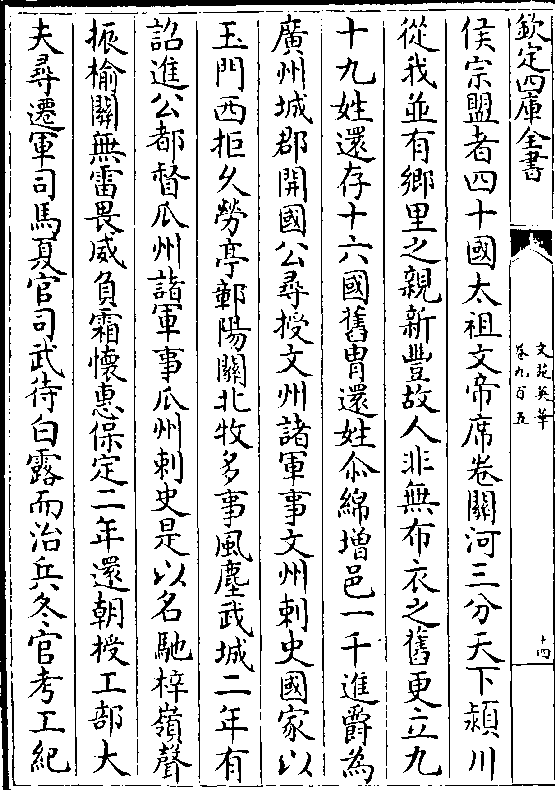 欽定四庫全書
文苑英華
卷九百五
十四
侯宗盟者四十國太祖文帝席卷關河三分天下潁川
從我並有鄉里之親新豐故人非無布衣之舊更立九
十九姓還存十六國舊胄還姓尒綿增邑一千進爵為
廣州城郡開國公尋授文州諸軍事文州刺史國家以
玉門西拒久勞亭鄣陽關北牧多事風塵武城二年有
詔進公都督瓜州諸軍事瓜州刺史是以名馳梓嶺聲
振榆關無雷畏威負霜懷惠保定二年還朝授工部大
夫尋遷軍司馬夏官司武待白露而治兵冬官考工紀